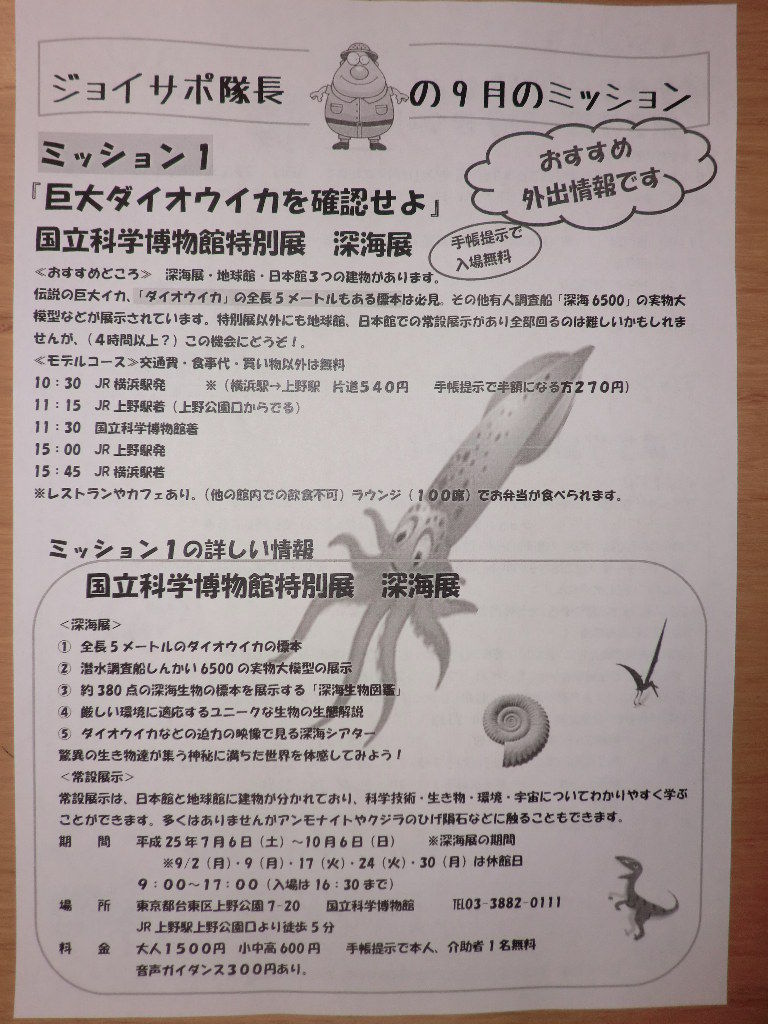 ジョイサポ隊長の9月のミッション
ミッション1
おすすめ
外出情報です
『巨大ダイオウイカを確認せよ』
国立科学博物館特別展　深海展
手帳提示で
入場無料
≪おすすめどころ≫　深海展・地球館・日本館3つの建物があります。
伝説の巨大イカ、「ダイオウイカ」の全長5メートルもある標本は必見。その他有人調査船「深海6500」の実物大
模型などが展示されています。特別展以外にも地球館、日本館での常設展示があり全部回るのは難しいかもしれま
せんが、（4時間以上？）この機会にどうぞ！。
≪モデルコース≫交通費・食事代・買い物以外は無料
10：30　JR横浜駅発　　※（横浜駅→上野駅　片道540円　　手帳提示で半額になる方270円）
11：15　JR上野駅着（上野公園口からでる）
11：30　国立科学博物館着
15：00　JR上野駅発
15：45　JR横浜駅着
※レストランやカフェあり。（他の館内での飲食不可）ラウンジ（100席）でお弁当が食べられます。
ミッション1の詳しい情報
国立科学博物館特別展　深海展
＜深海展＞
① 全長5メートルのダイオウイカの標本
② 潜水調査船しんかい6500の実物大模型の展示
③ 約380点の深海生物の標本を展示する「深海生物図鑑」
④ 厳しい環境に適応するユニークな生物の生態解説
⑤ ダイオウイカなどの迫力の映像で見る深海シアター
驚異の生き物達が集う神秘に満ちた世界を体感してみよう！
＜常設展示＞
常設展示は、日本館と地球館に建物が分かれており、科学技術・生き物・環境・宇宙についてわかりやすく学ぶ
ことができます。多くはありませんがアンモナイトやクジラのひげ隕石などに触ることもできます。
期　間　平成25年7月6日（土）～10月6日（日）　　※深海展の期間
※9/2（月）・9（月）・17（火）・24（火）・30（月）は休館日
9：00～17：00（入場は16：30まで）
場　所　東京都台東区上野公園7-20　国立科学博物館　　℡03-3882-0111
JR上野駅上野公園口より徒歩5分
料　金　大人1500円　小中高600円　手帳提示で本人、介助者1名無料
音声ガイダンス300円あり。